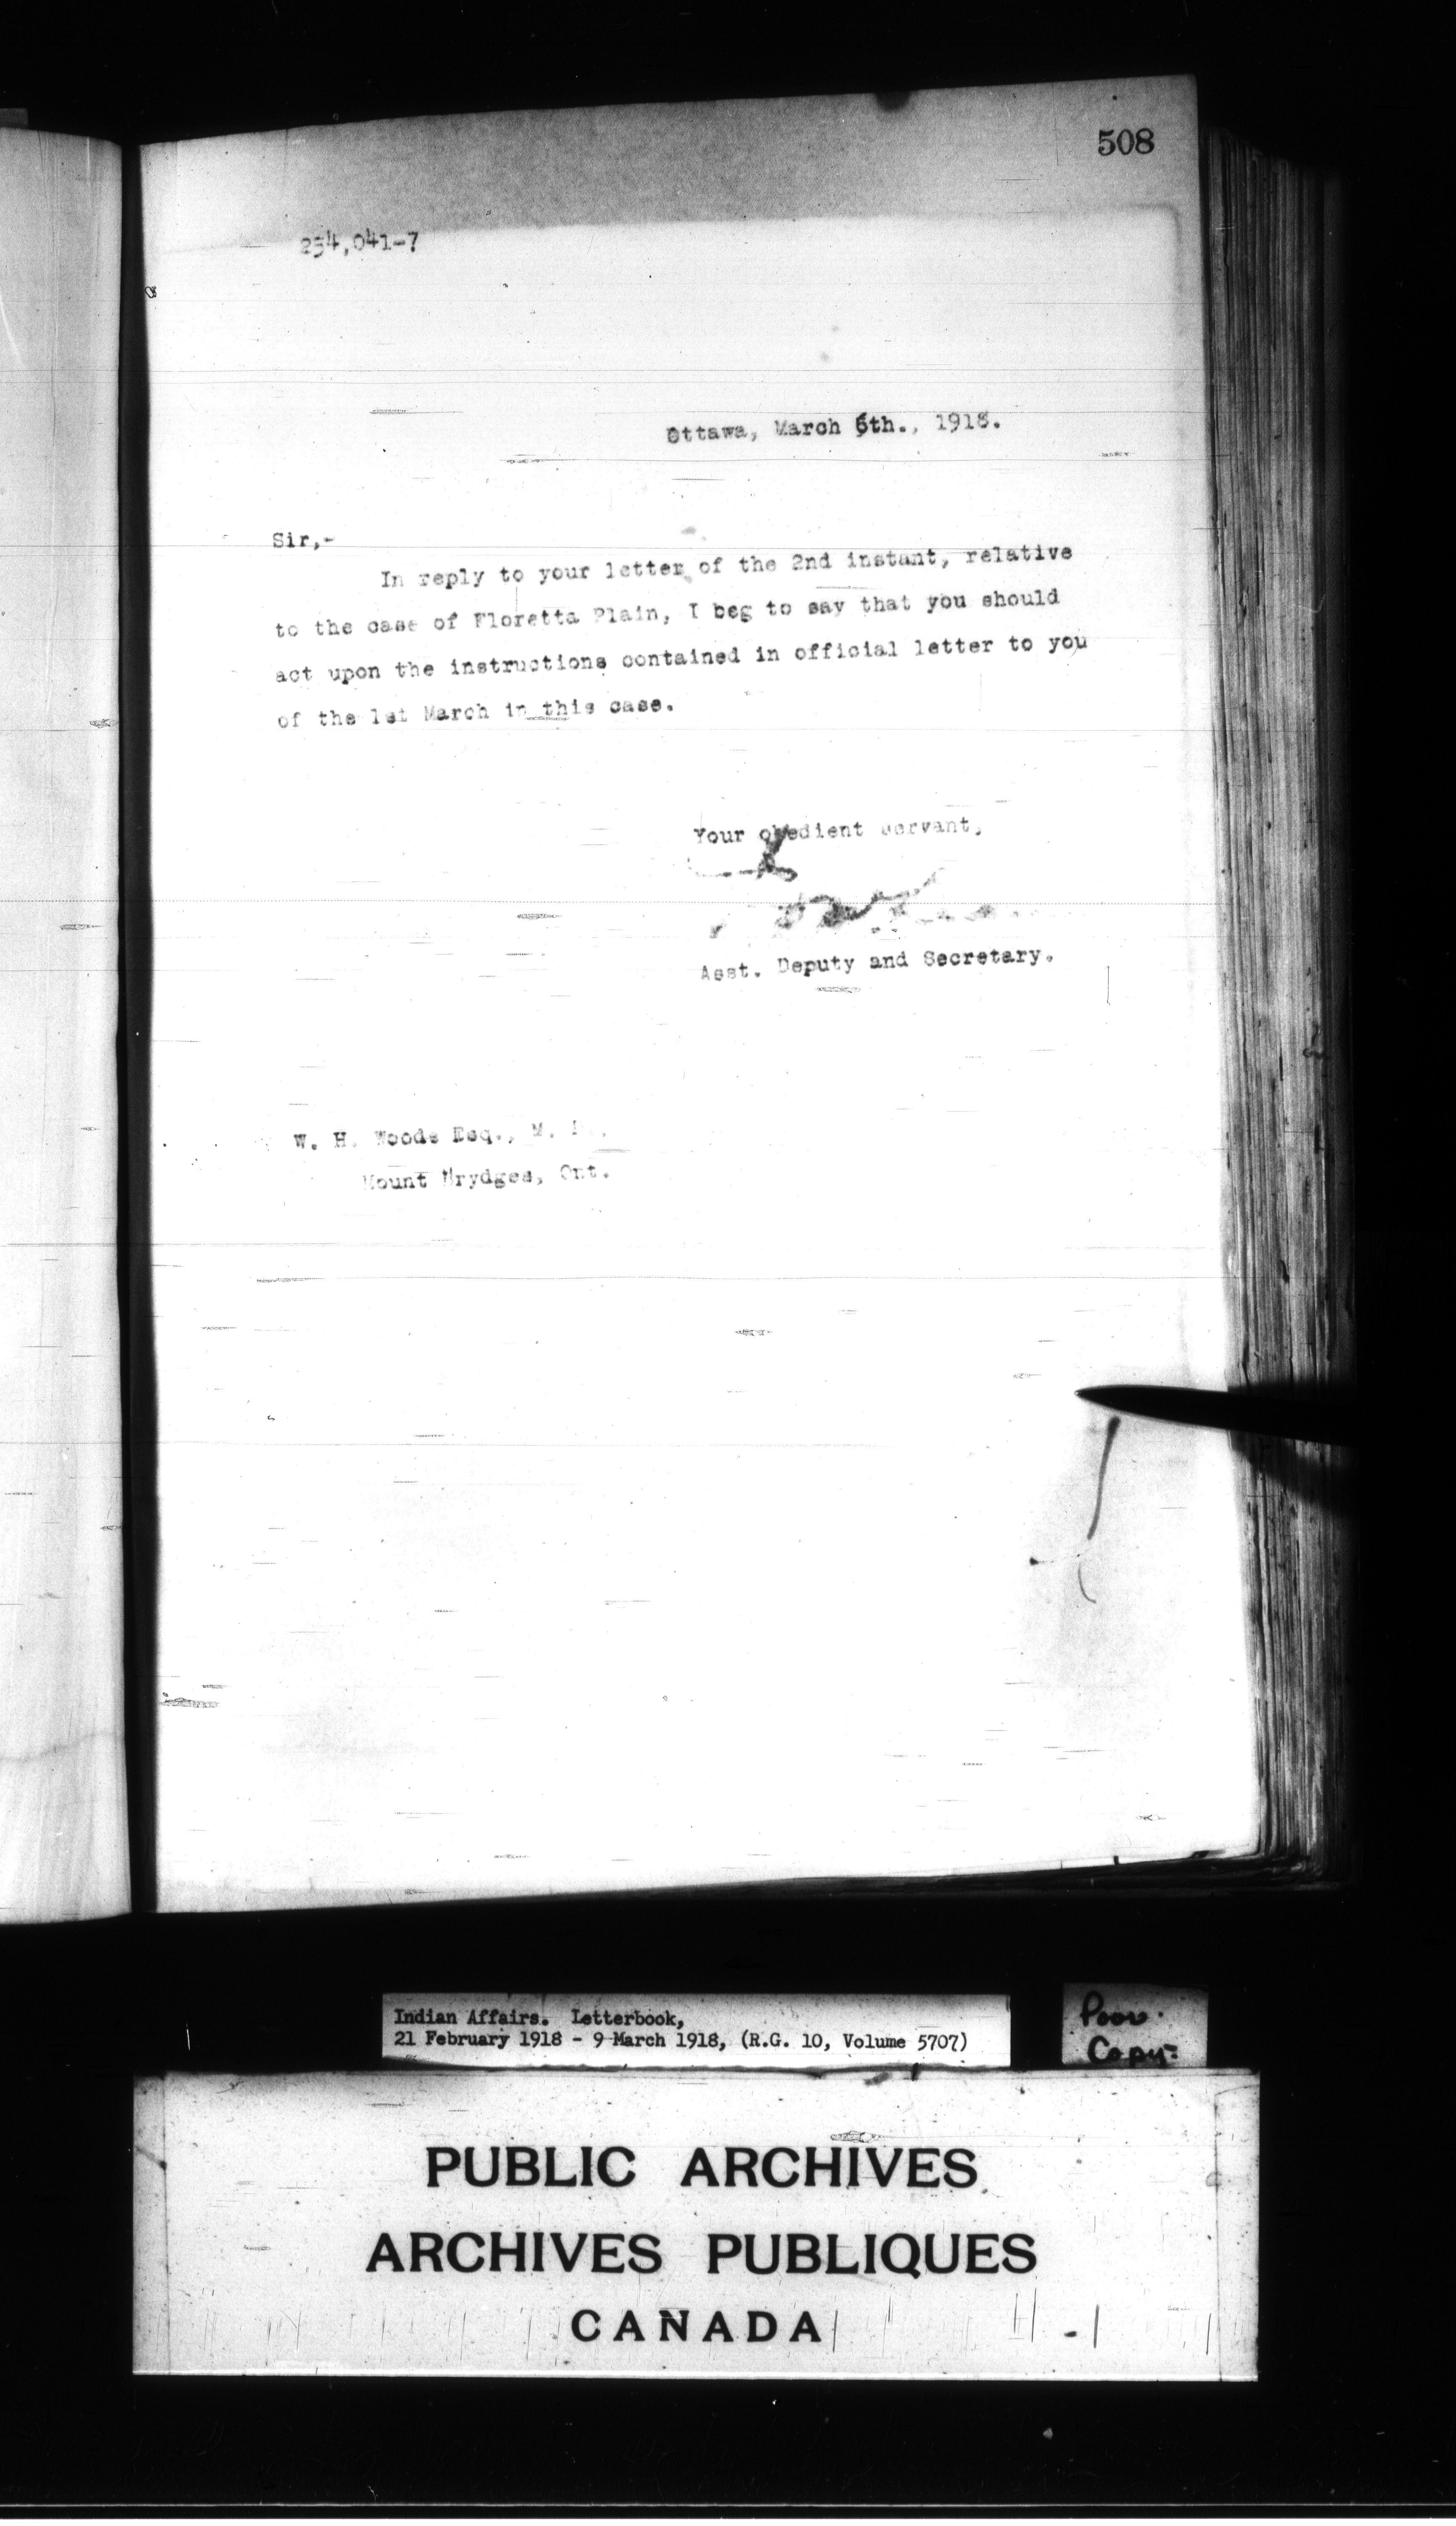 508
254,041-7
Ottawa, March 6th., 1918.
Sir,-
In reply to your letter of the 2nd instant, relative
to the case of Floretta Plain, I beg to say that you should
act upon the instructions contained in official letter to you
of the 1st March in this case.
Your obedient servant,
Asst. Deputy and Secretary.
W. H. Woods Esq., M.
Mount Brydges, Ont.
Indian Affairs. Letterbook,
21 February 1918 - 9 March 1918, (R.G. 10, Volume 5707)
Poor
Copy
PUBLIC ARCHIVES
ARCHIVES PUBLIQUES
CANADA